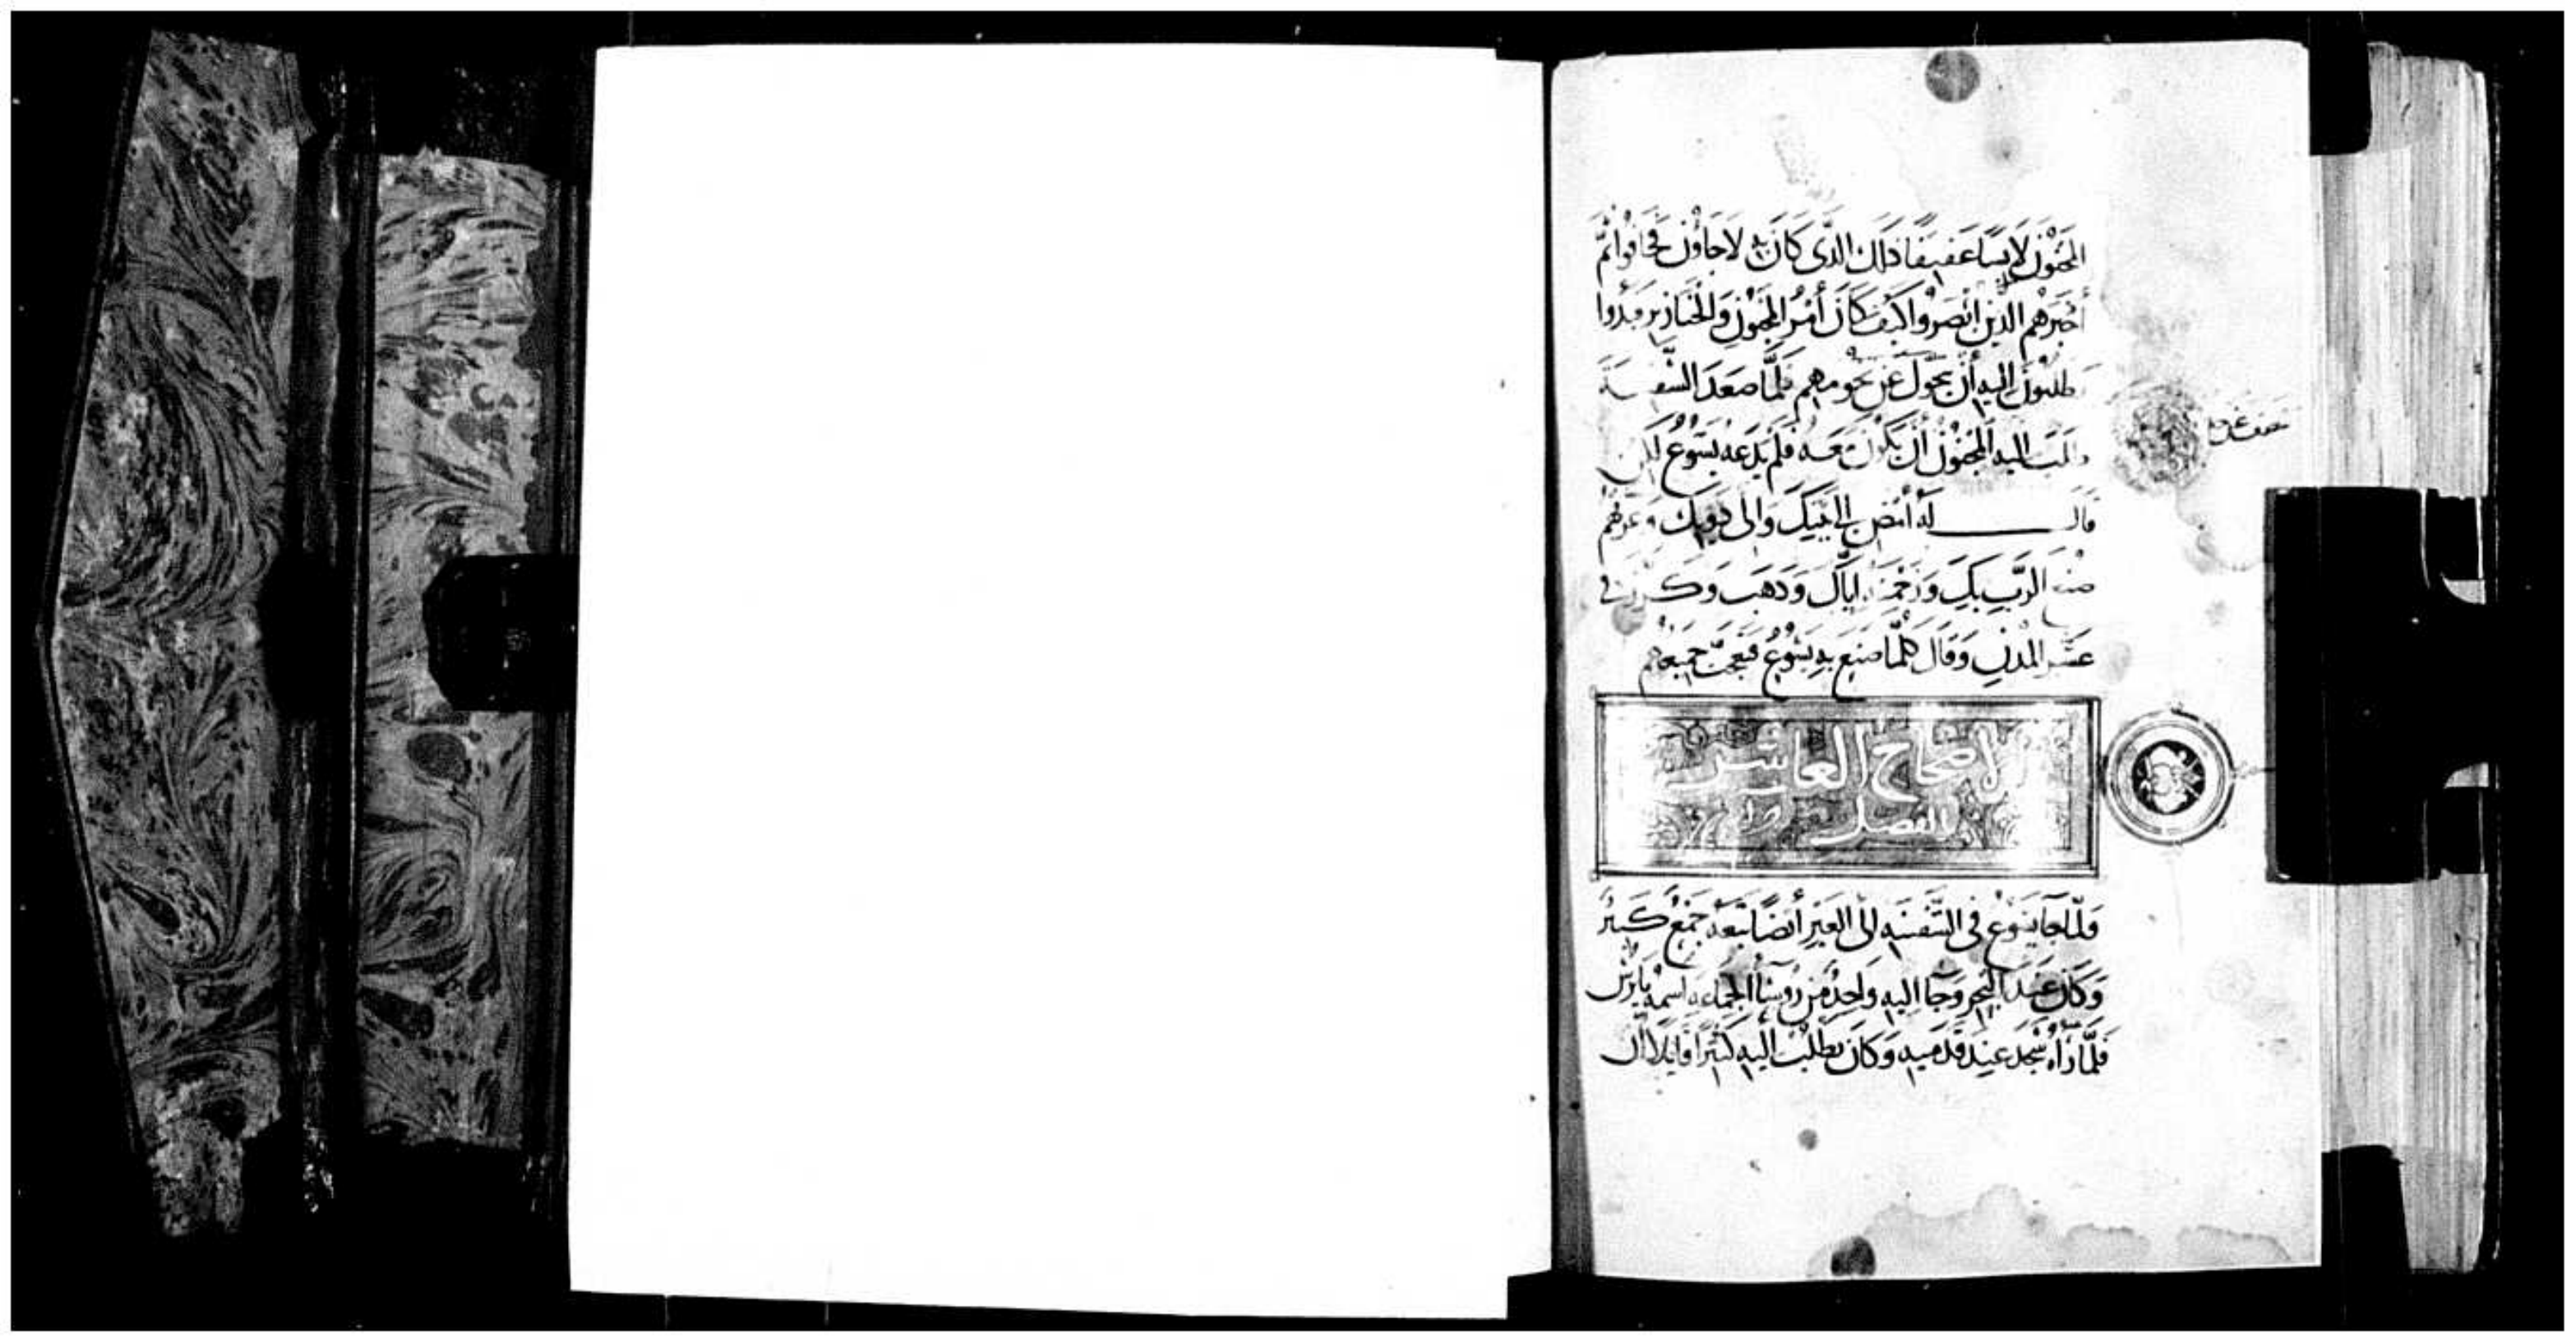 المجنون لابسًا عفيفًا ذلك الذى كان به لاجاؤن فخافوا ثم
أخبرهم الذين ابصروا كيف كان أمر المجنون والخنازير وبدؤا
يطلبون اليه أن يحول عن تخومهم فلمّا صعد السّفينة
طلب اليه المجنون أن يكون معه فلم يدعه يسوع لكن
قال له أمض الى بيتك والى ذويك وعرفهم
صنع الرّبّ بك ورحمته ايّاك وذهب وكرز فى
عشر المدن وقال كلّما صنع به يسوع فتعجّب جميعهم
الاصحاح العاشر
الفصل
ولمّا جا يسوع فى السّفينه الى العبر أيضًا تبعه جمع كبير
وكان عند البحر وجا اليه واحد من رؤسا الجماعه اسمه يايرس
فلمّا رأه سجد عند قدميه وكان يطلب اليه كثيرًا قايلا ان